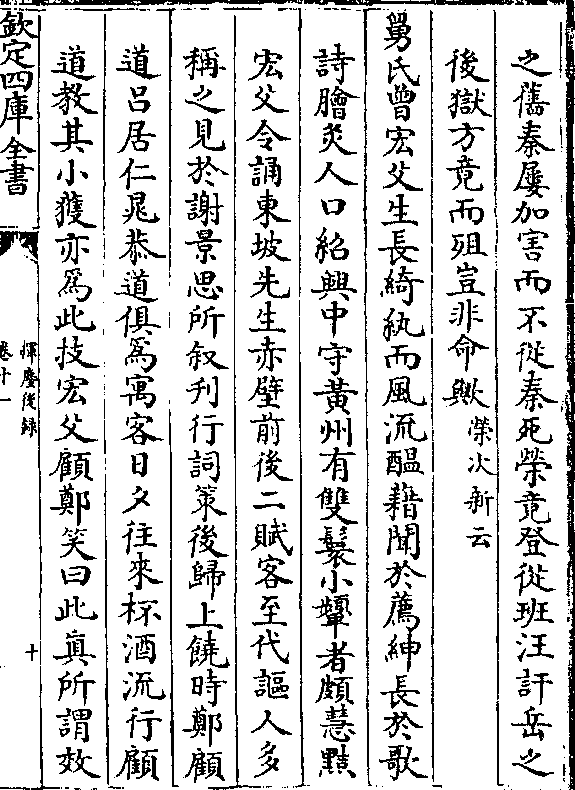 之舊秦屢加害而不從秦死榮竟登從班汪訐岳之
後獄方竟而殂豈非命歟榮次新云
舅氏曾宏父生長綺紈而風流醖藉聞於薦紳長於歌
詩膾炙人口紹興中守黃州有雙鬟小顰者頗慧黠
宏父令誦東坡先生赤壁前後二賦客至代謳人多
稱之見於謝景思所叙刋行詞策後歸上饒時鄭顧
道呂居仁晁恭道俱爲寓客日夕往來杯酒流行顧
道教其小獲亦爲此技宏父顧鄭笑曰此真所謂效
欽定四庫全書
揮麈後録
卷十一
十